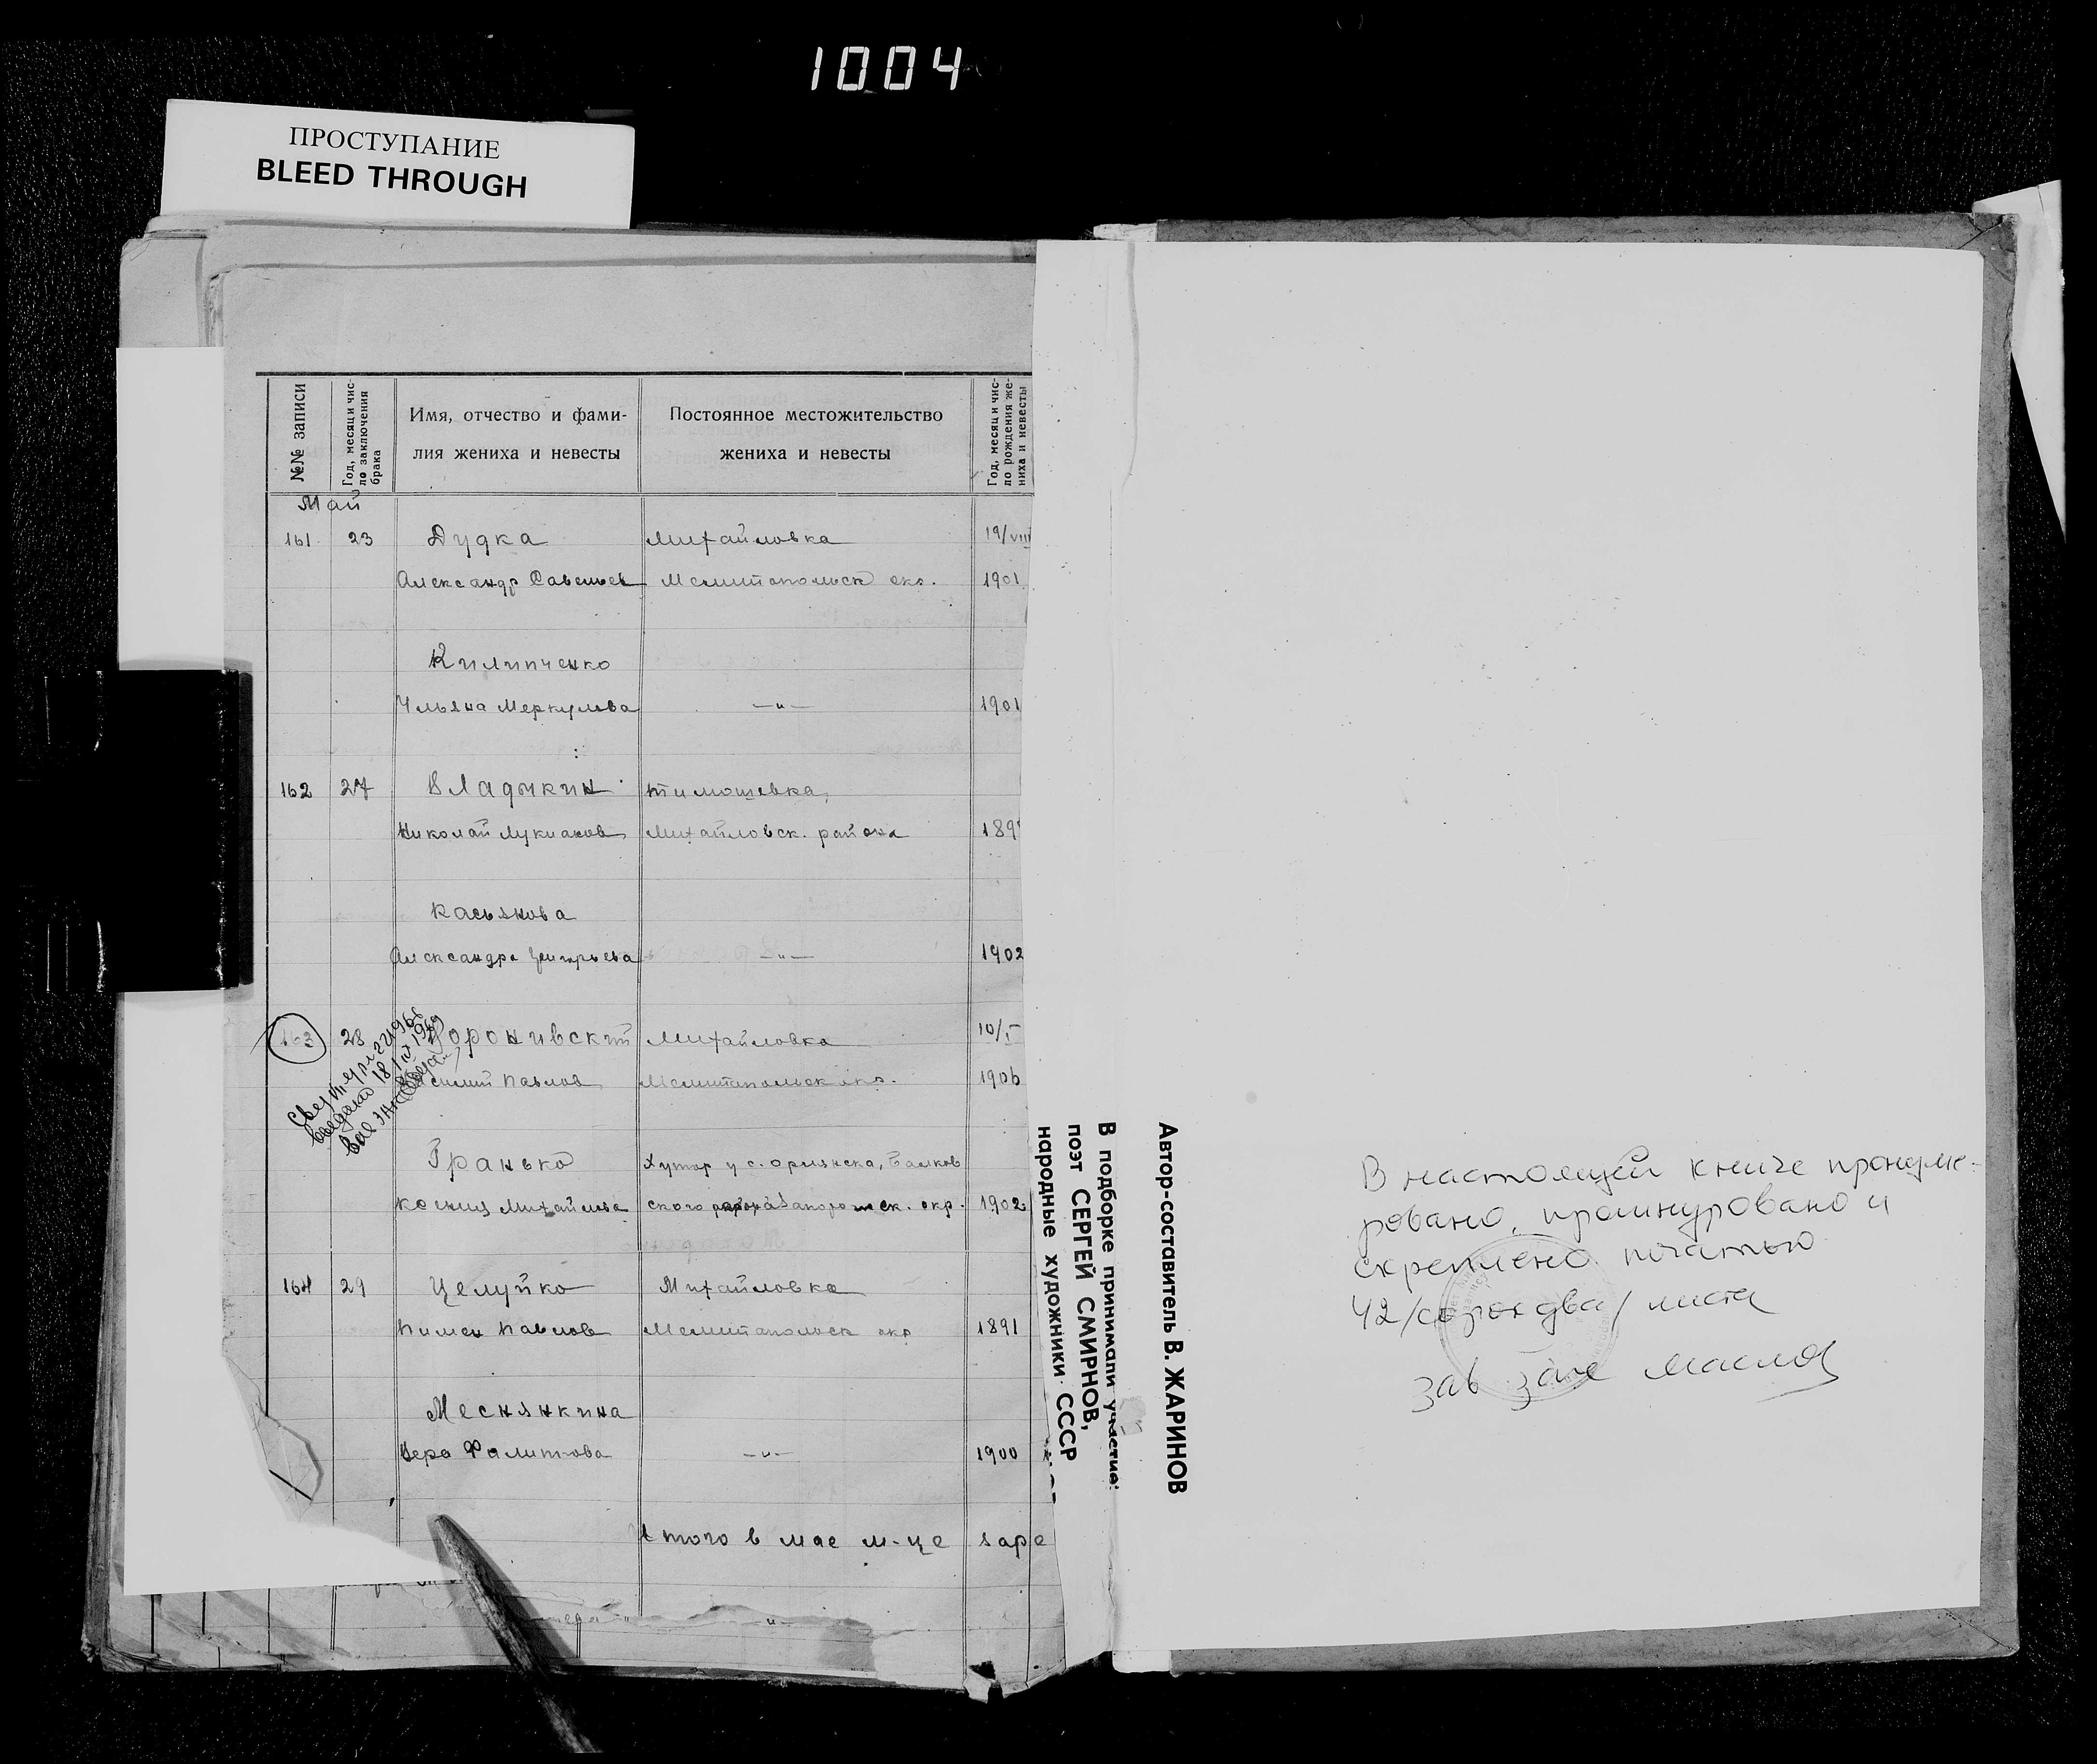 1004
ПРОСТУПАНИЕ
BLEED THROUGH
№№ записи
Год, месяц и чис-
ло заключения
брака
Имя, отчество и фами-
лия жениха и невесты
Постоянное местожительство
жениха и невесты
Год, месяц и чис-
ло рождения же-
ниха и невесты
Май
161 23 Дудка Михайловка 19/VIII
Александр Савельев Мелитопольск окр. 1901
Килипченко
Ульяна Меркулова —"— 1901
162 27 Владыкин Тимошевка,
Николай Лукианов Михайловск. района 189
Касьянова
Александра Григорьева —"— 1902
163 28 Михайловка 10/V
Павлов Мелитопольск окр. 1906
1969
Гранько Хутор у с. Орлянска, Балков
Ксения Михайлова ского района Запорожск. окр. 1902
164 29 Целуйко Михайловка
Пимен Павлов Мелитопольск окр 1891
Меснянкина
Вера Филиппова —"— 1900
Итого в мае м-це заре
—"—
Автор-составитель В. ЖАРИНОВ
В подборке принимали участие:
поэт СЕРГЕЙ СМИРНОВ,
народные художники СССР
В настоящей книге пронуме-
ровано, прошнуровано и
скреплено печатью
42 /сорок два/ листа
Зав загс